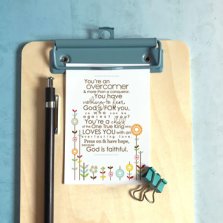 You're an
overcomer
& more than a conqueror.
You have
nothing to fear,
God's FOR you,
so who can be
against you?
You're a child
of the One True King who
LOVES YOU with an
everlasting love.
Press on & have hope,
because
God is faithful.